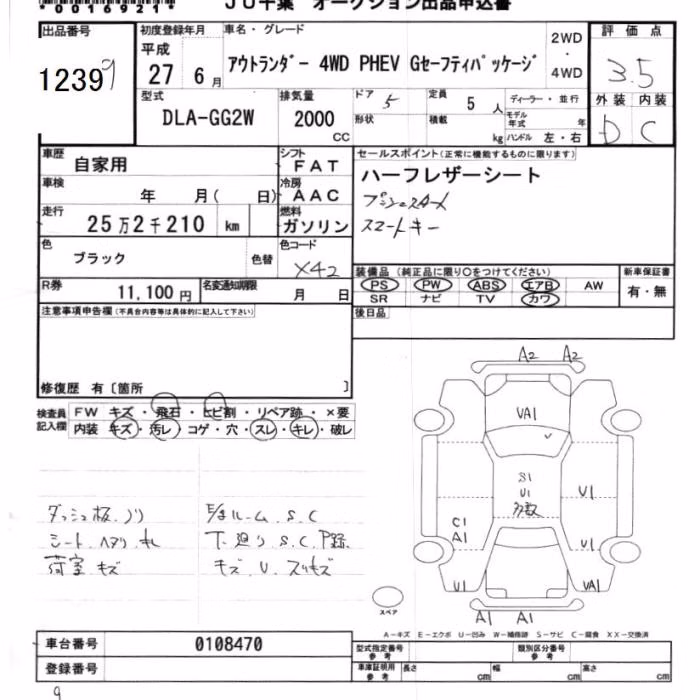 *0016921*
JU千葉 オークション出品申込書
出品番号
12399
初度登録年月
平成
27 6月
車名・グレード
アウトランダー 4WD PHEV Gセーフティパッケージ
2WD
・
4WD
評価点
3.5
外装 内装
D C
型式
DLA-GG2W
排気量
2000
CC
ドア 5
形状
定員 5 人
積載 kg
ディーラー・並行
モデル年式 年
ハンドル 左・右
車歴
自家用
シフト
FAT
セールスポイント(正常に機能するものに限ります)
ハーフレザーシート
プッシュスタート
スマートキー
車検
年 月( 日)
冷房
AAC
走行
25万2千210 km
燃料
ガソリン
色
ブラック
色替
色コード
X42
装備品(純正品に限り○をつけてください)
PS PW ABS エアB AW
SR ナビ TV カワ
新車保証書
有・無
R券
11,100円
名変通知期限
月 日
後日品
注意事項申告欄(不具合内容等は具体的に記入して下さい)
修復歴 有〔箇所 〕
検査員
記入欄
FW キズ・飛石・ヒビ割・リペア跡・×要
内装 キズ・汚レ・コゲ・穴・スレ・キレ・破レ
ダッシュ板、ノリ
シート、ヘタリ
荷室 キズ
E/gルーム、S、C
下廻り、S、C、P録
キズ、U、スリキズ
A2 A2
VA1
S1
U1
多数
U1
C1
A1
U1
U1
VA1
A1 A1
スペア
A-キズ E-エクボ U-凹み W-補修跡 S-サビ C-腐食 XX-交換済
車台番号
0108470
登録番号
型式指定番号
参考
類別区分番号
参考
車庫証明用
参考
長さ cm
幅 cm
高さ cm
9